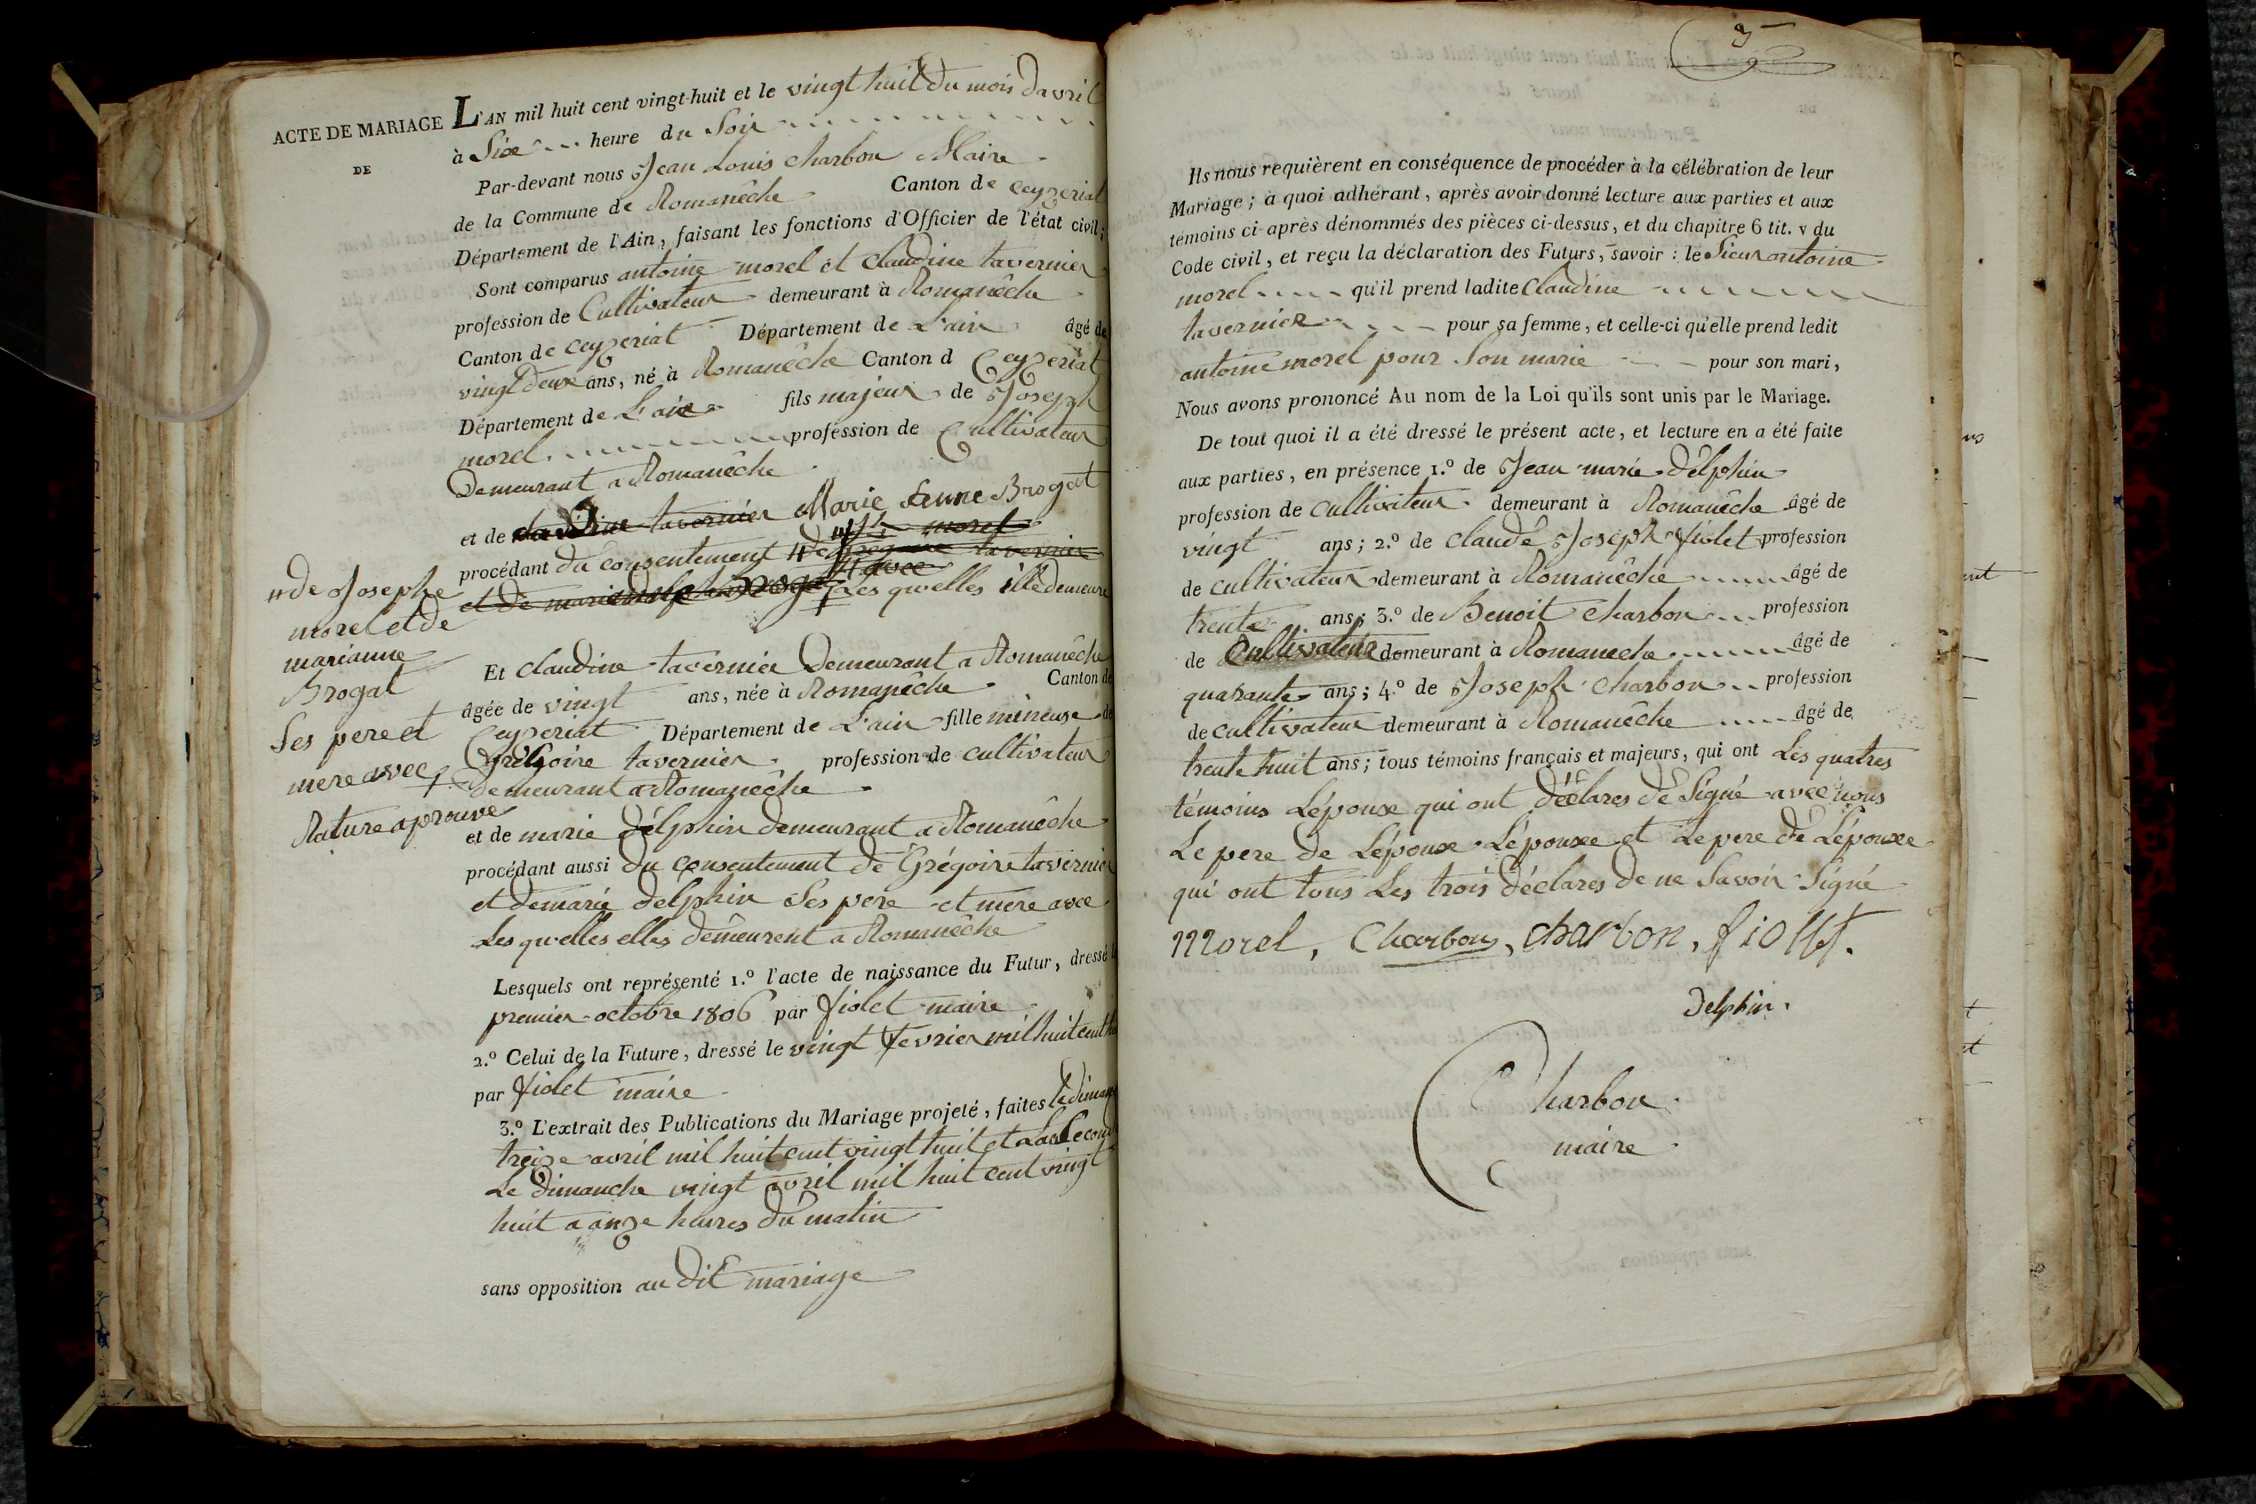 ACTE DE MARIAGE
DE
L'AN mil huit cent vingt-huit et le vingt huit du mois davril
à Six heure du Soir
Par-devant nous Jean Louis charbon Maire
de la Commune de Romanêche Canton de ceyzeriat
Département de l'Ain, faisant les fonctions d'Officier de l'état civil;
Sont comparus antoine morel et claudine tavernier
profession de Cultivateur demeurant à Romanêche
Canton de ceyzeriat Département de L'ain âgé de
vingt deux ans, né à Romanêche Canton d Ceyzeriat
Département de L'ain fils majeur de Joseph
morel profession de Cultivateur
Demeurant a Romanêche
et de claudine tavernier Marie Anne Brogat
procédant du consentement
et de marie delphin avec Les quelles ille demeure
"de Josephe
morel et de
marianne
Brogat
Ses pere et
mere avec
Rature aprouve
Et claudine tavernier Demeurant a Romanêche
âgée de vingt ans, née à Romanêche Canton de
Ceyzeriat Département de L'ain fille mineuse de
Grégoire tavernier profession de cultivateur
demeurant a Romanêche
et de marie délphin demeurant a Romanêche
procédant aussi du consentement de Grégoire tavernier
et demarie delphin Ses pere et mere avec
Les qu'elles elles demeurent a Romanêche
Lesquels ont représenté 1.º l'acte de naissance du Futur, dressé le
premier octobre 1806 par fiolet maire
2.º Celui de la Future, dressé le vingt fevrier mil huit cent
par fiolet maire
3.º L'extrait des Publications du Mariage projeté, faites le diman
treize avril mil huit cent vingt huit et La Secon
Le dimanche vingt avril mil huit cent vingt
huit a onze heures du matin
sans opposition au dit mariage
3
Ils nous requièrent en conséquence de procéder à la célébration de leur
Mariage; à quoi adhérant, après avoir donné lecture aux parties et aux
témoins ci-après dénommés des pièces ci-dessus, et du chapitre 6 tit. v du
Code civil, et reçu la déclaration des Futurs, savoir: le Sieur antoine
morel qu'il prend ladite Claudine
tavernier pour sa femme, et celle-ci qu'elle prend ledit
antoine morel pour Son marie pour son mari,
Nous avons prononcé Au nom de la Loi qu'ils sont unis par le Mariage.
De tout quoi il a été dressé le présent acte, et lecture en a été faite
aux parties, en présence 1.º de Jean marie délphin
profession de cultivateur demeurant à Romanêche âgé de
vingt ans; 2.º de claudé Joseph fiolet profession
de cultivateur demeurant à Romanêche âgé de
trente ans; 3.º de Benoit charbon profession
de Cultivateur demeurant à Romaneche âgé de
quarante ans; 4.º de Joseph charbon profession
de cultivateur demeurant à Romanêche âgé de
trente huit ans; tous témoins français et majeurs, qui ont Les quatres
témoins Lépoux qui ont déclares de Signé avec nous
Le pere de Lépoux Lépouxe et Le pere de Lépouxe
qui ont tous Les trois déclares de ne Savoir Signé
morel, Charbon, charbon, fiollet.
Delphin.
Charbon
maire